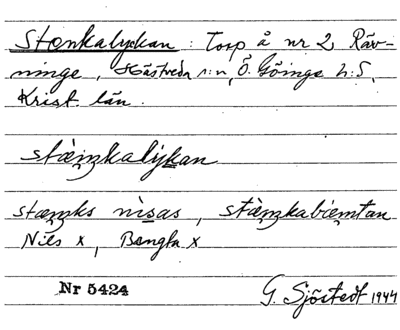 Stenkalyckan : Torp å nr 2, Räv-
ninge, Hästveda s:n, Ö. Göinge h:d,
Krist. län.
stæ̀ŋkalỳkan
stæŋks nìsas, stæ̀ŋkabiemtan
Nils x, Bengta x
Nr 5424
G. Sjöstedt 1944